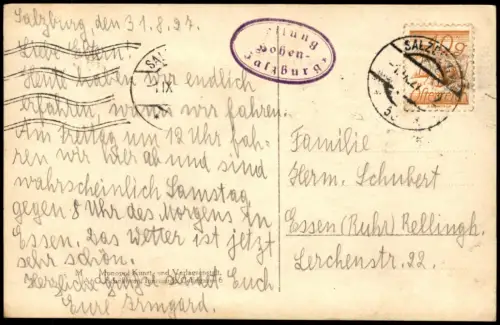 Salzburg, den 31.8.27.
Liebe Eltern.
Heute haben wir endlich
erfahren, wann wir fahren.
Am Freitag um 12 Uhr fah-
ren wir hier ab und sind
wahrscheinlich Samstag
gegen 8 Uhr des Morgens in
Essen. Das Wetter ist jetzt
sehr schön.
Herzliche Grüße sendet Euch
Eure Irmgard.
Hohen-
Salzburg
SALZB
Familie
Herm. Schubert
Essen (Ruhr) Rellingh.
Lerchenstr. 22.